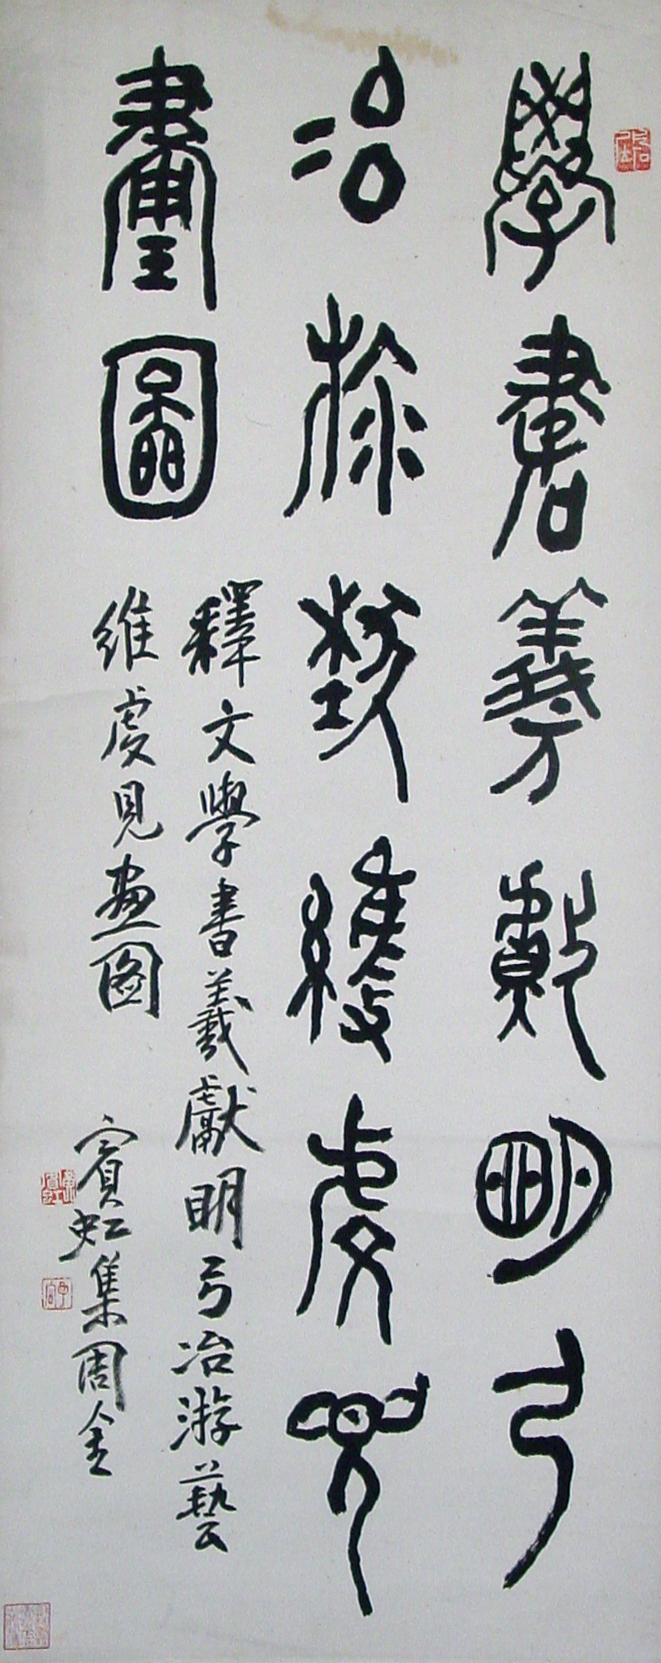 學書羲獻明弓
冶游藝維虔見
畫圖
釋文學書羲獻明弓冶游藝
維虔見画图
賓虹集周金